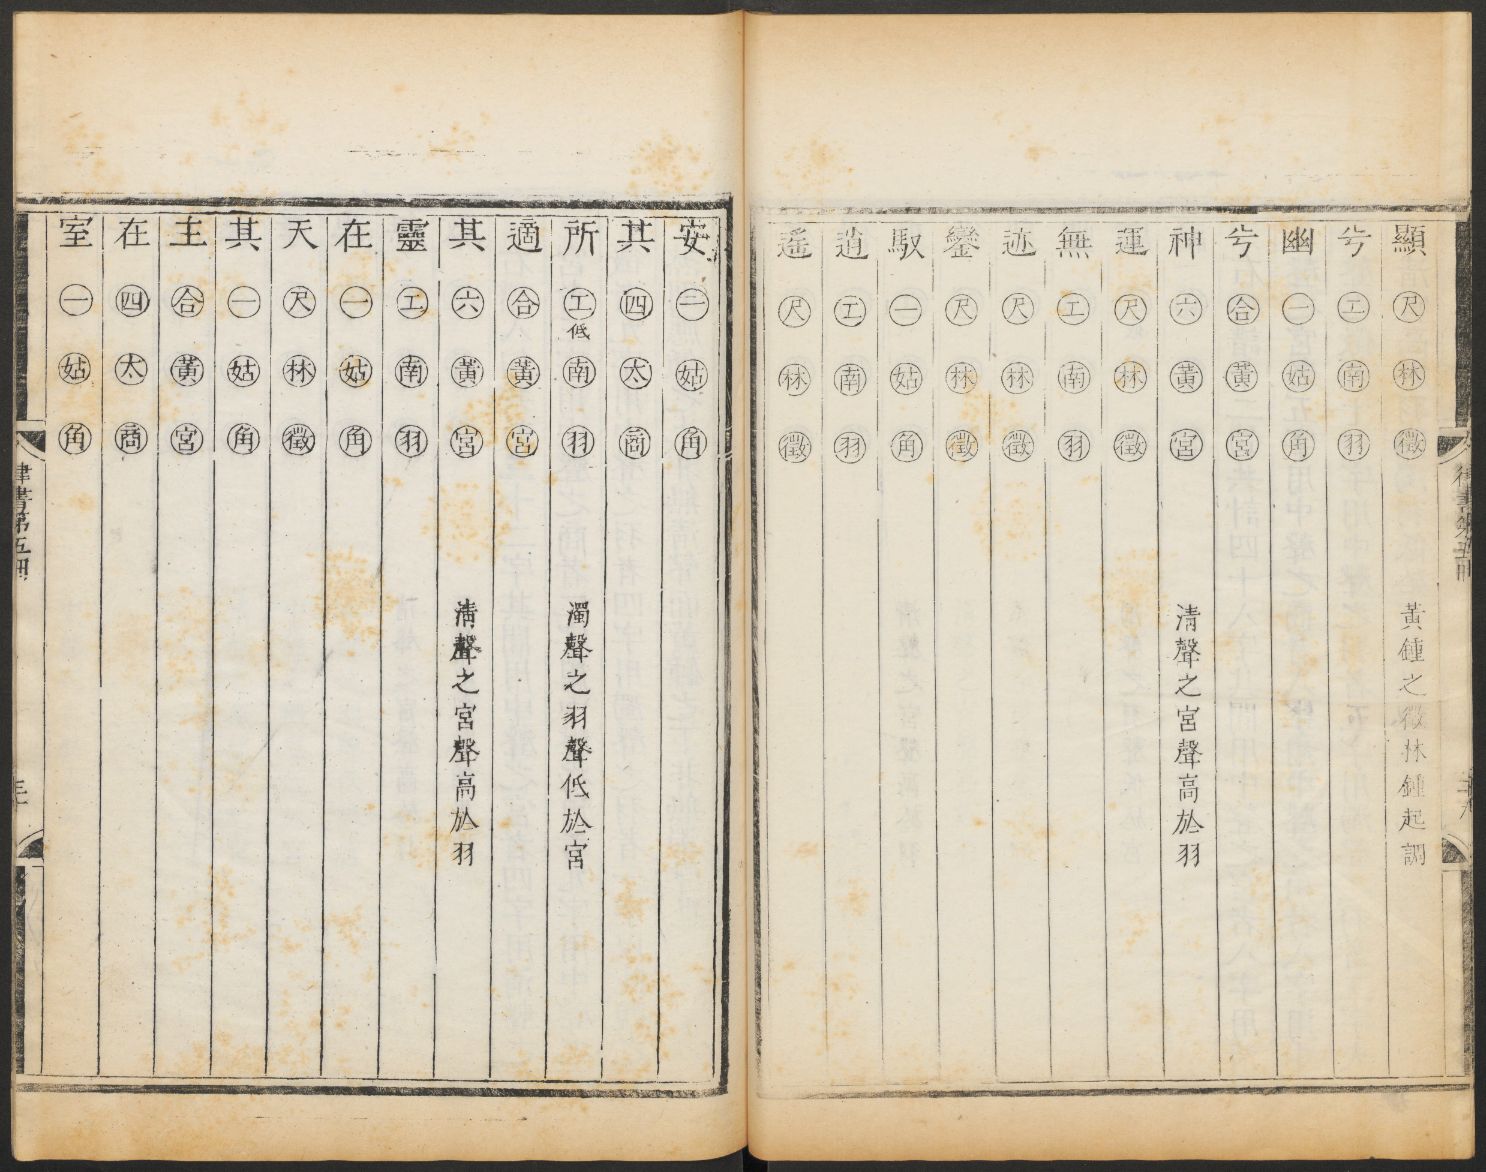 顯 尺 林 徵 黃鍾之徵林鍾起調
兮 工 南 羽
幽 一 姑 角
兮 合 黃 宮
神 六 黃 宮 清聲之宮聲高於羽
運 尺 林 徵
無 工 南 羽
迹 尺 林 徵
鑾 尺 林 徵
馭 一 姑 角
逍 工 南 羽
遙 尺 林 徵
安 一 姑 角
其 四 太 商
所 工 低 南 羽 濁聲之羽聲低於宮
適 合 黃 宮
其 六 黃 宮 清聲之宮聲高於羽
靈 工 南 羽
在 一 姑 角
天 尺 林 徵
其 一 姑 角
主 合 黃 宮
在 四 太 商
室 一 姑 角
律書第五冊